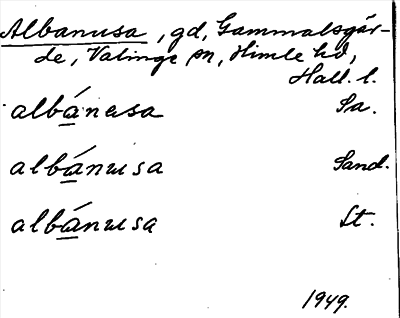 Albanusa, gd, Gammalsgår-
de, Valinge sn, Himle hd,
Hall. l.
albánusa Sa.
albánusa Sand.
albánusa Lt.
1949.